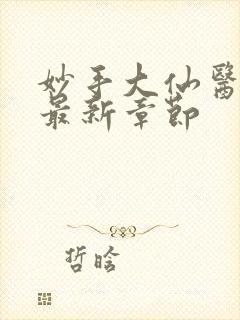 妙手大仙醫
最新章節
哲晗